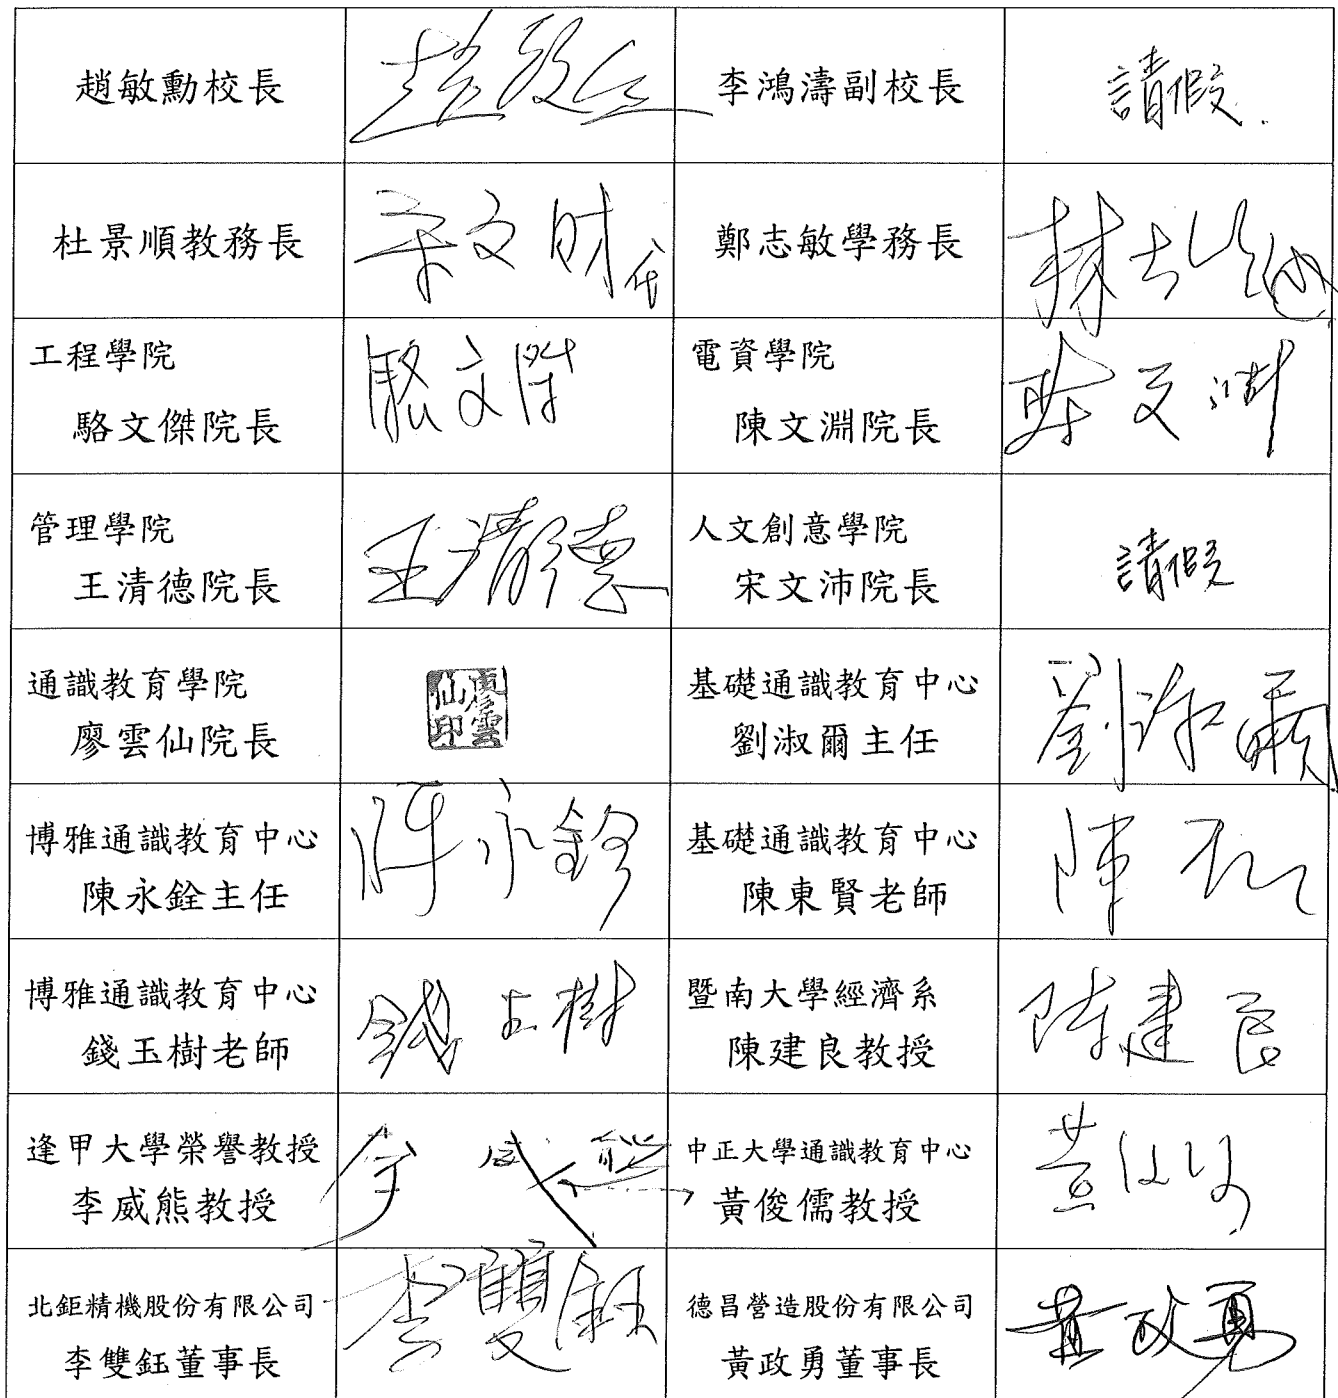 趙敏勳校長
趙敏
李鴻濤副校長
請假.
杜景順教務長
宋文財代
鄭志敏學務長
林
工程學院
駱文傑院長
駱文傑
電資學院
陳文淵院長
陳文淵
管理學院
王清德院長
王清德
人文創意學院
宋文沛院長
請假
通識教育學院
廖雲仙院長
廖雲仙印
基礎通識教育中心
劉淑爾主任
劉淑爾
博雅通識教育中心
陳永銓主任
陳永銓
基礎通識教育中心
陳東賢老師
陳
博雅通識教育中心
錢玉樹老師
錢玉樹
暨南大學經濟系
陳建良教授
陳建良
逢甲大學榮譽教授
李威熊教授
李威熊
中正大學通識教育中心
黃俊儒教授
黃
北鉅精機股份有限公司
李雙鈺董事長
李雙鈺
德昌營造股份有限公司
黃政勇董事長
黃政勇